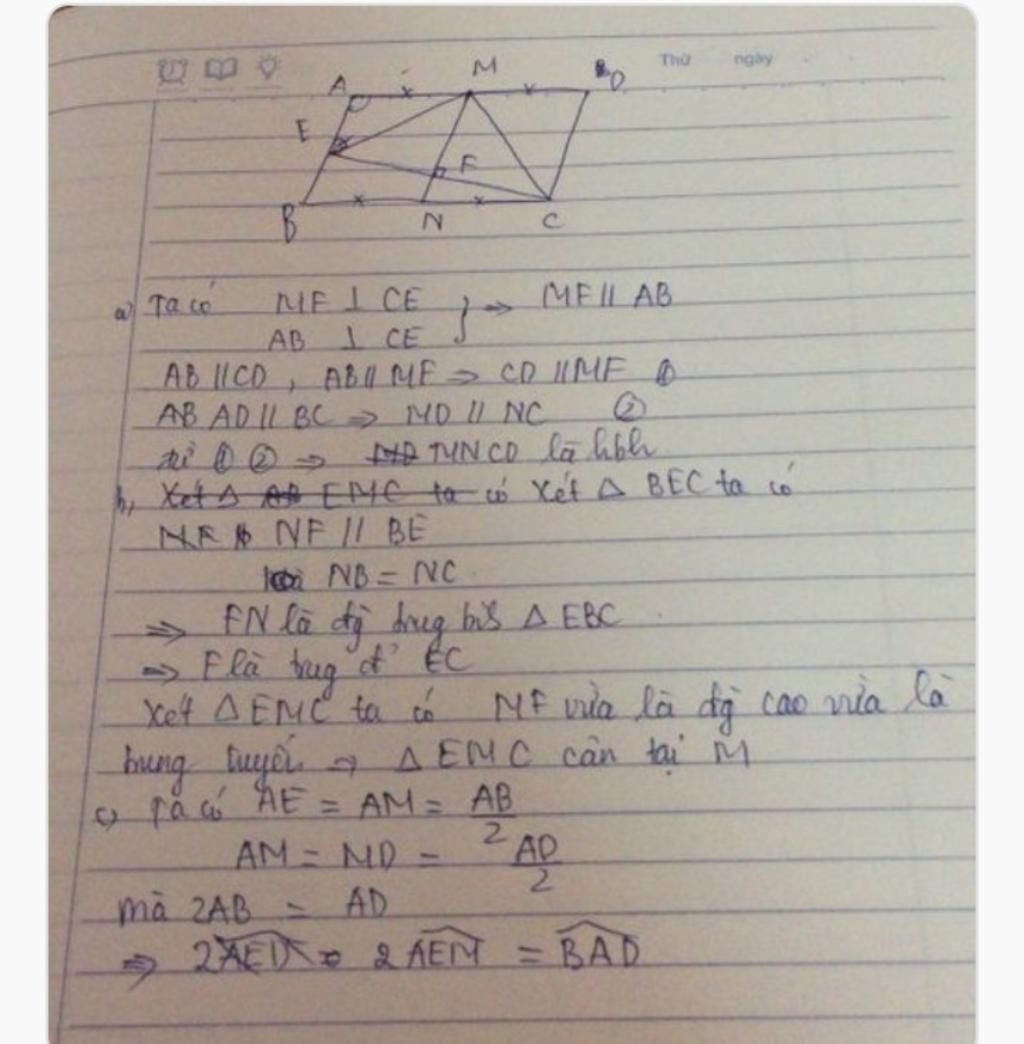 Thứ ngày
A M D
E
F
B N C
a) Ta có MF ⊥ CE } ⇒ MF // AB
AB ⊥ CE
AB // CD , AB // MF ⇒ CD // MF ①
AB AD // BC ⇒ MD // NC ②
từ ① ② ⇒ MNCD là hbh
b, Xét Δ EMC ta có Xét Δ BEC ta có
NF NF // BE
NB = NC
⇒ FN là đg trug bìh Δ EBC
⇒ F là trug đ' EC
Xét Δ EMC ta có MF vừa là đg cao vừa là
trung tuyến ⇒ Δ EMC cân tại M
c, Ta có AE = AM = AB/2
AM = MD = AD/2
mà 2AB = AD
⇒ 2AED = 2AEM = BAD